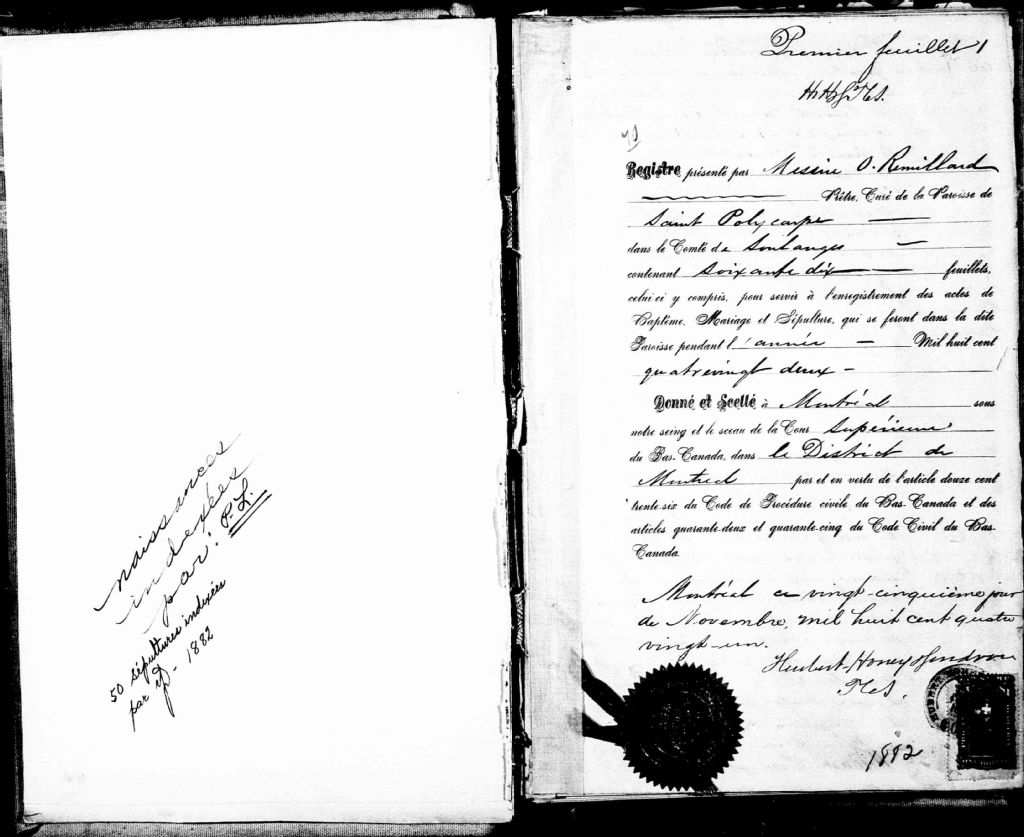 naissances
indexées
par: P.L.
50 sépultures indexées
par
1882
Premier feuillet 1
Registre présenté par Messire O. Remillard
Prêtre, Curé de la Paroisse de
Saint Polycarpe
dans le Comté de Soulanges
contenant Soixante dix feuillets,
celui ci y compris, pour servir à l'enregistrement des actes de
Baptême, Mariage et Sépulture, qui se feront dans la dite
Paroisse pendant l'année Mil huit cent
quatrevingt deux -
Donné et Scellé à Montréal sous
notre seing et le sceau de la Cour Supérieure
du Bas-Canada, dans le District de
Montreal par et en vertu de l'article douze cent
trente-six du Code de Procédure civile du Bas-Canada et des
articles quarante-deux et quarante-cinq du Code Civil du Bas-
Canada.
Montréal ce vingt-cinquième jour
de Novembre, mil huit cent quatre
vingt-un.
Hubert, Honey & Gendron
1882